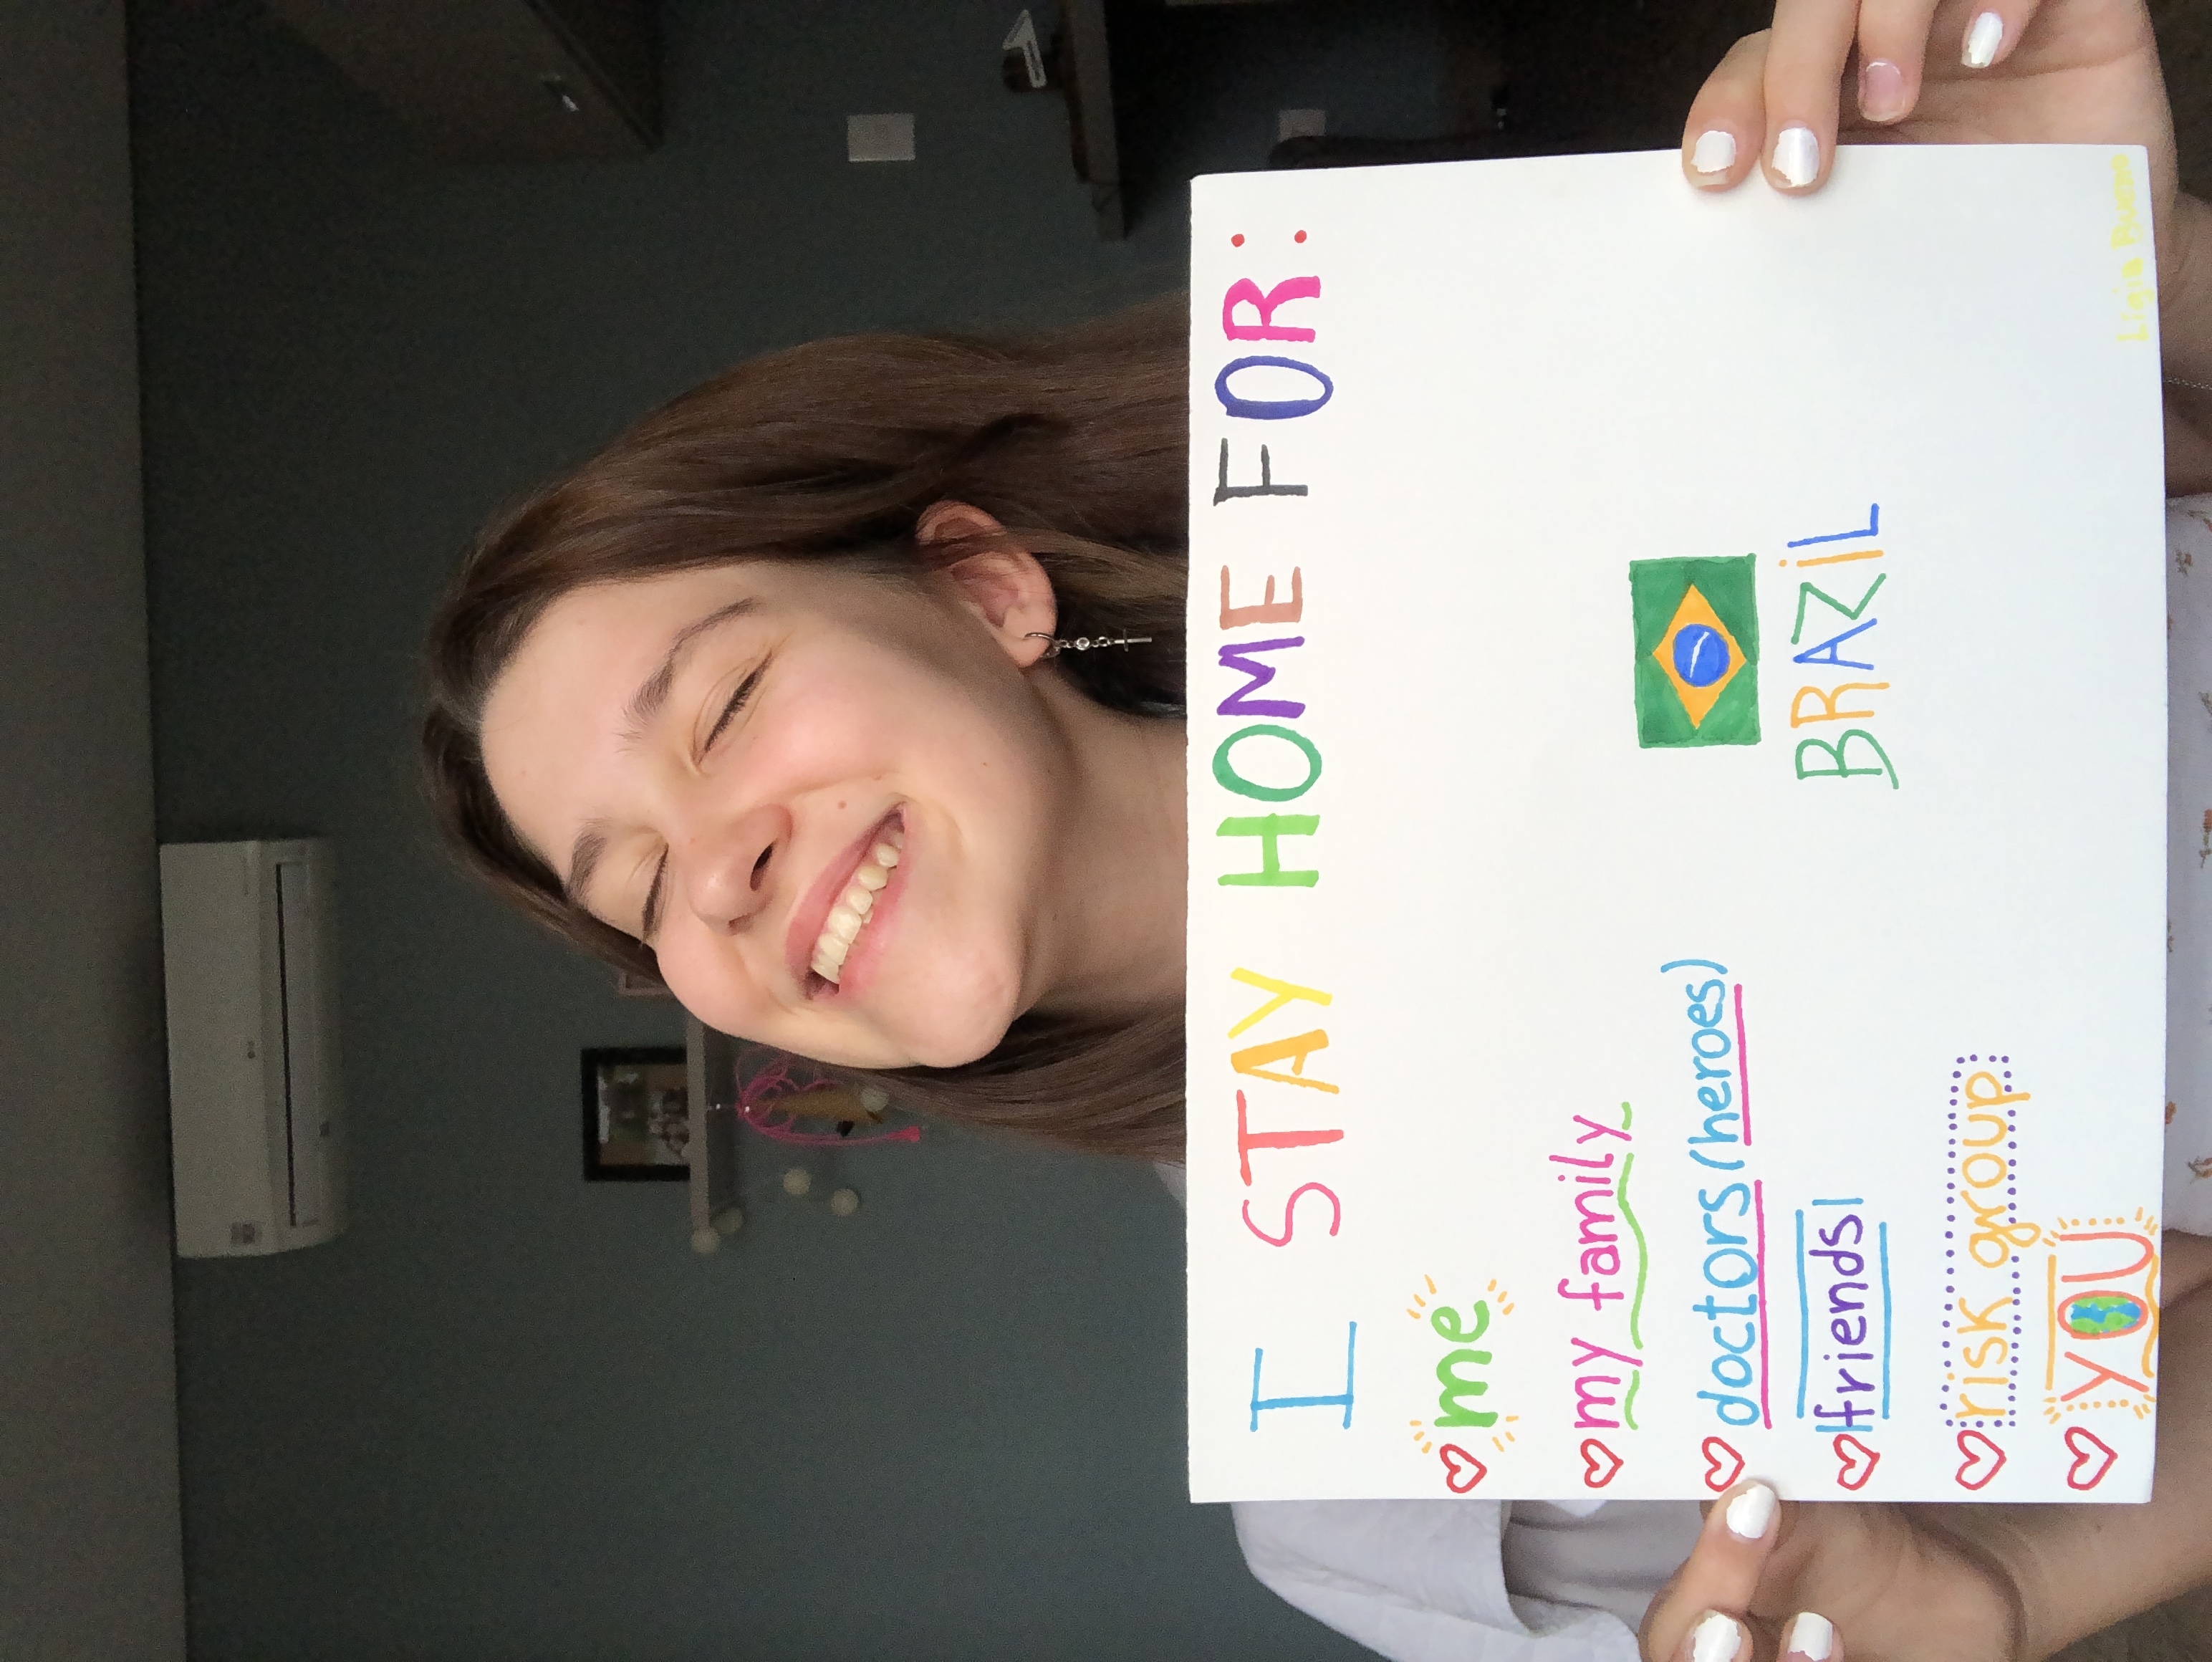 LG
I STAY HOME FOR:
me
my family
doctors (heroes)
friends
risk group
YOU
BRAZIL
Ligia Bueno